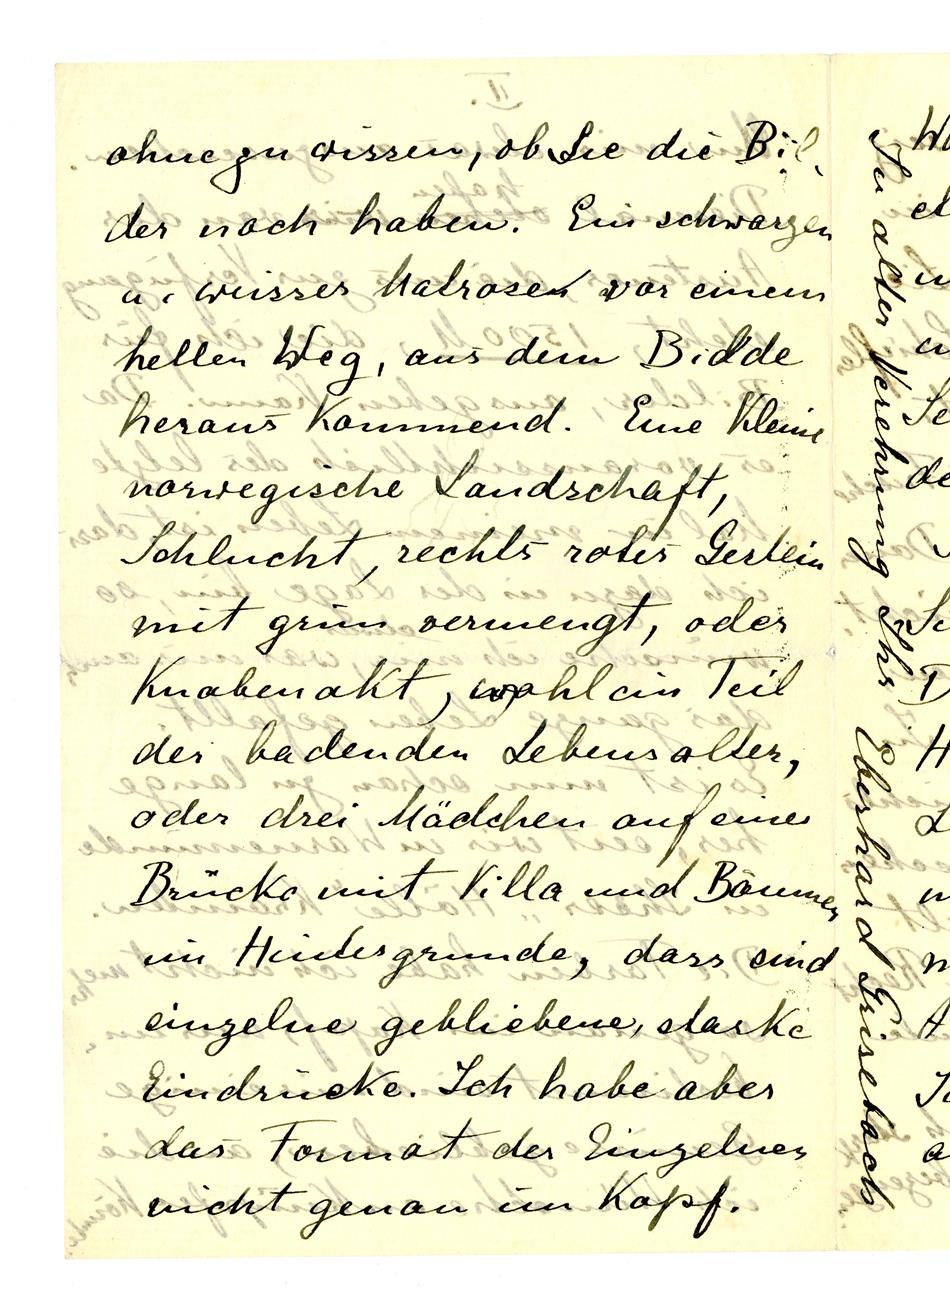 ohne zu wissen, ob Sie die Bil-
der noch haben. Ein schwarzer
u. weisser Matrose vor einem
hellen Weg, aus dem Bilde
heraus kommend. Eine kleine
norwegische Landschaft,
Schlucht, rechts rotes Gestein
mit grün vermengt, oder
Knabenakt, wohl ein Teil
der badenden Lebensalter,
oder drei Mädchen auf einer
Brücke mit Villa und Bäumen
im Hintergrunde, dass sind
einzelne gebliebene, starke
Eindrücke. Ich habe aber
das Format der Einzelnen
nicht genau im Kopf.
In alter Verehrung Ihr Eberhard Grisebach